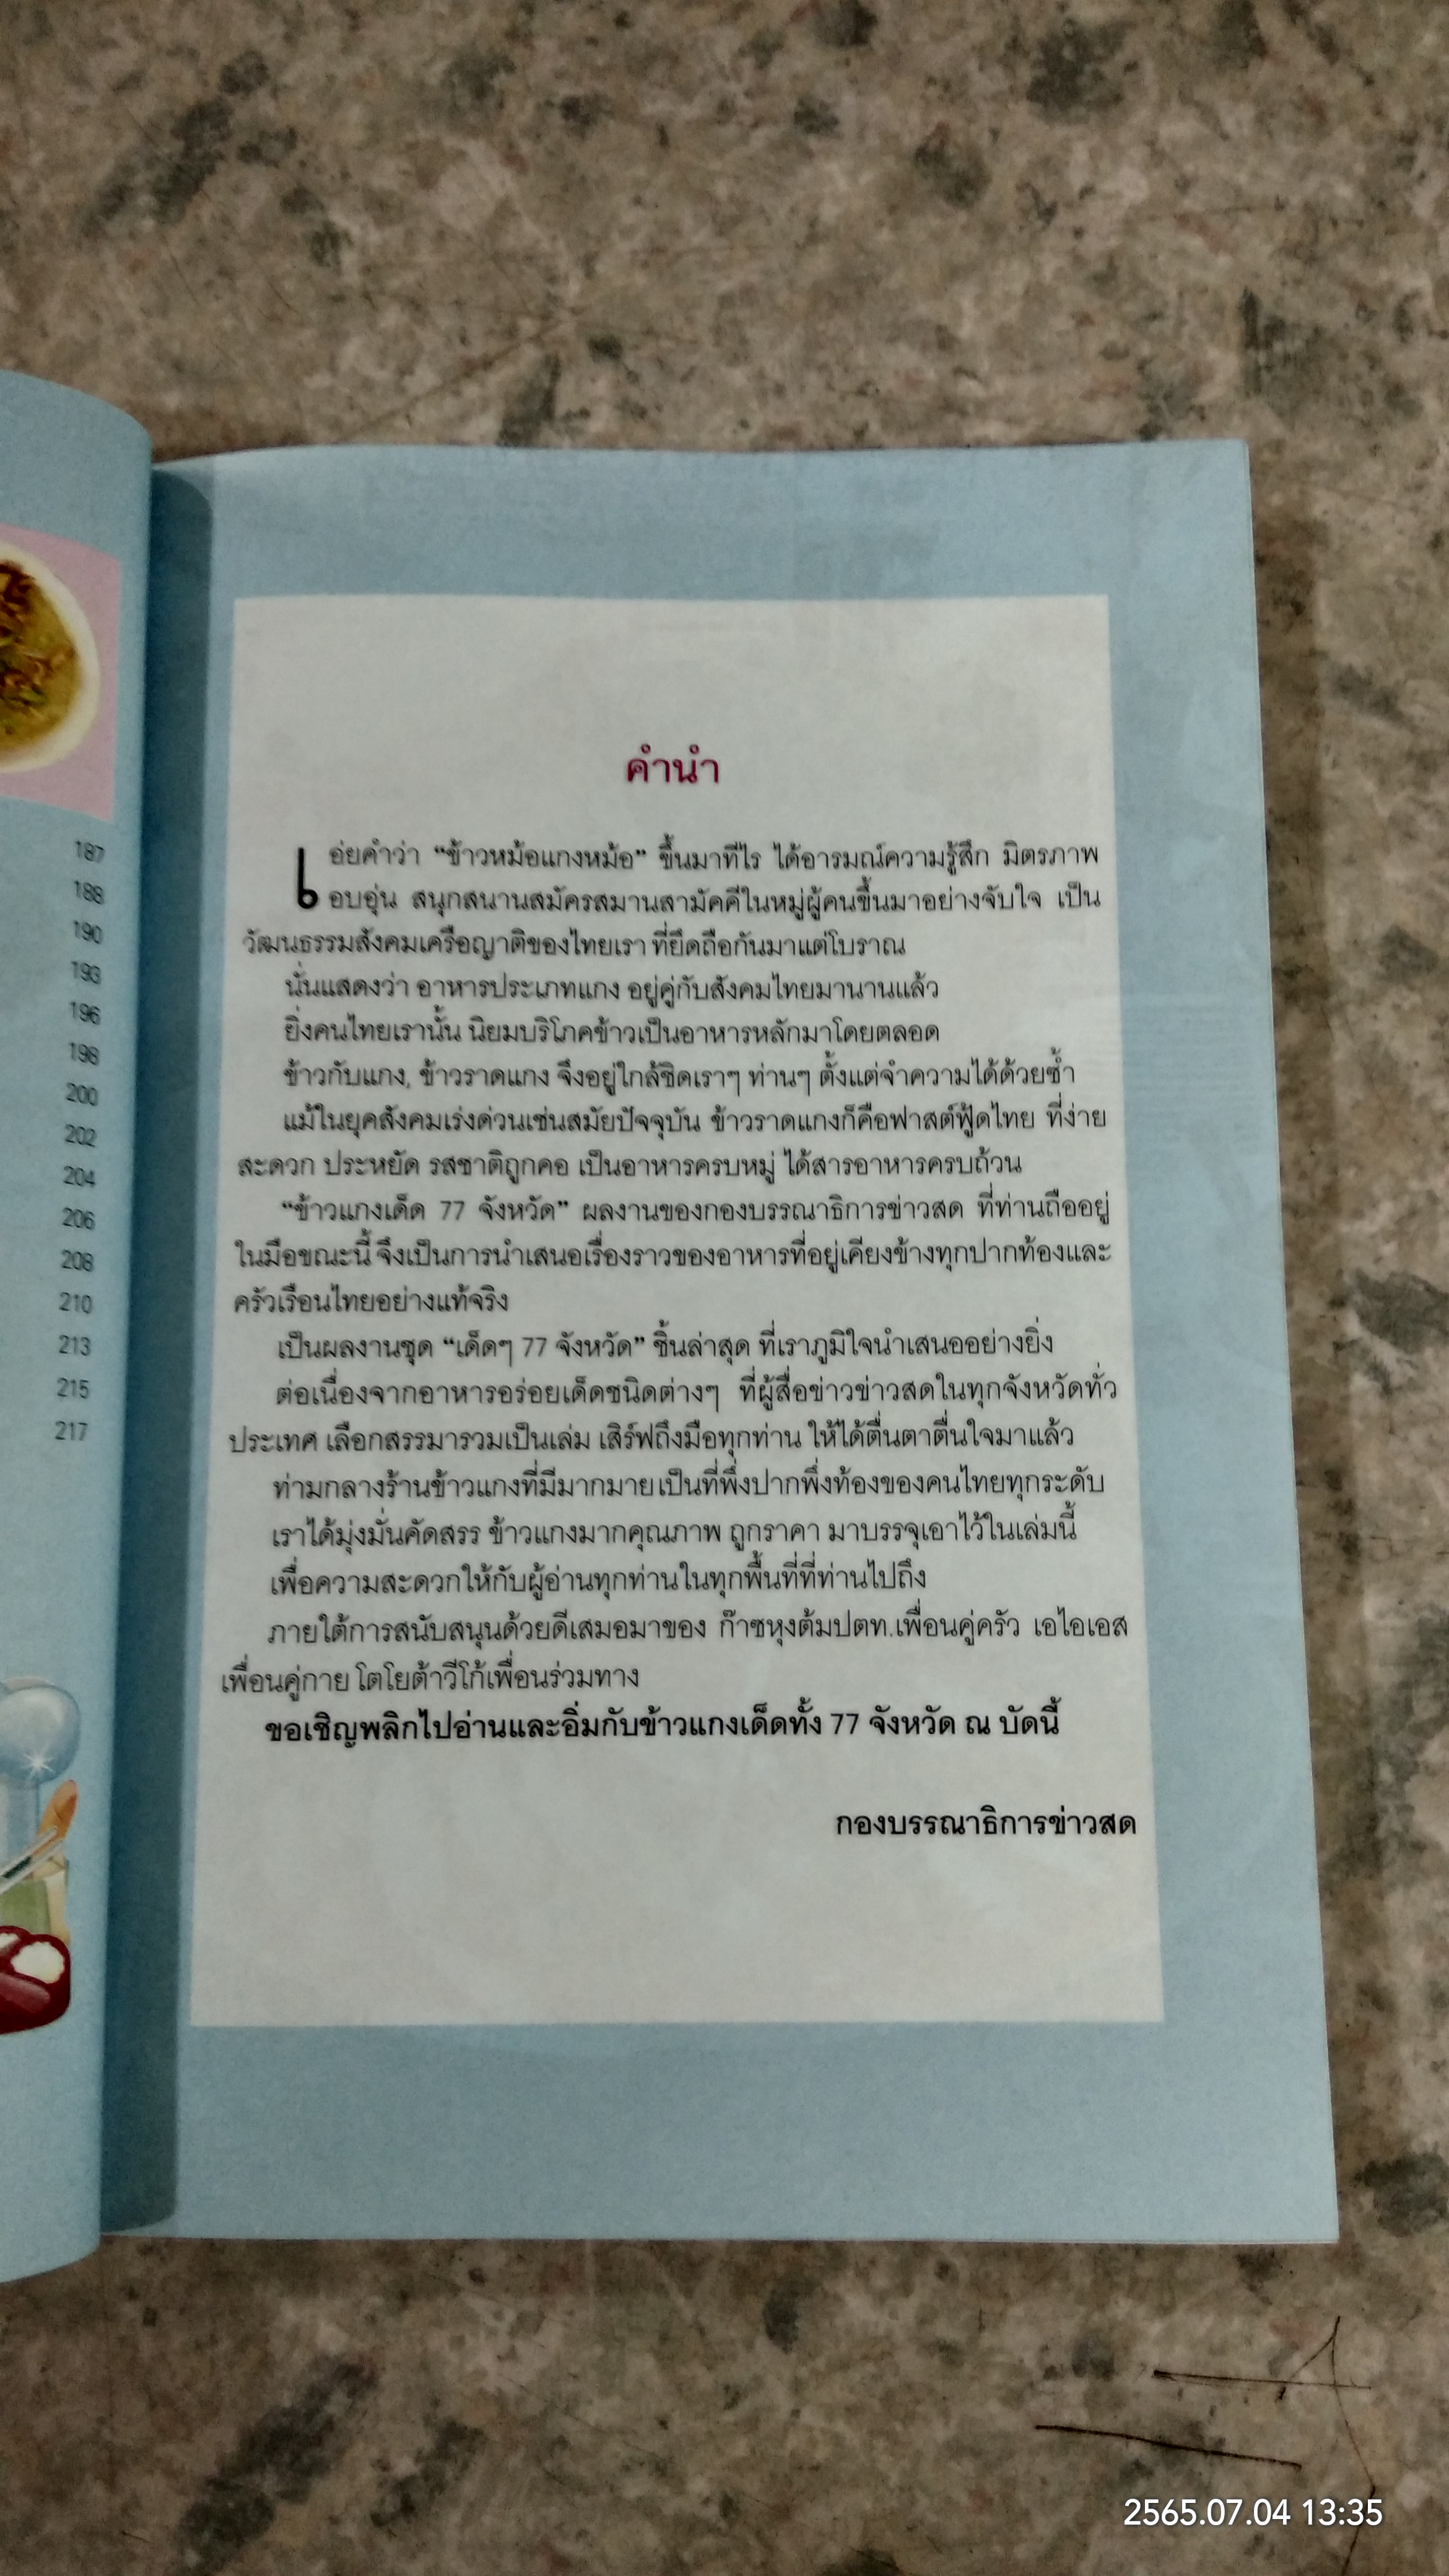 187
188
190
193
196
198
200
202
204
206
208
210
213
215
217
คำนำ
เอ่ยคำว่า “ข้าวหม้อแกงหม้อ” ขึ้นมาทีไร ได้อารมณ์ความรู้สึก มิตรภาพ
อบอุ่น สนุกสนานสมัครสมานสามัคคีในหมู่ผู้คนขึ้นมาอย่างจับใจ เป็น
วัฒนธรรมสังคมเครือญาติของไทยเรา ที่ยึดถือกันมาแต่โบราณ
นั่นแสดงว่า อาหารประเภทแกง อยู่คู่กับสังคมไทยมานานแล้ว
ยิ่งคนไทยเรานั้น นิยมบริโภคข้าวเป็นอาหารหลักมาโดยตลอด
ข้าวกับแกง, ข้าวราดแกง จึงอยู่ใกล้ชิดเราๆ ท่านๆ ตั้งแต่จำความได้ด้วยซ้ำ
แม้ในยุคสังคมเร่งด่วนเช่นสมัยปัจจุบัน ข้าวราดแกงก็คือฟาสต์ฟู้ดไทย ที่ง่าย
สะดวก ประหยัด รสชาติถูกคอ เป็นอาหารครบหมู่ ได้สารอาหารครบถ้วน
“ข้าวแกงเด็ด 77 จังหวัด” ผลงานของกองบรรณาธิการข่าวสด ที่ท่านถืออยู่
ในมือขณะนี้ จึงเป็นการนำเสนอเรื่องราวของอาหารที่อยู่เคียงข้างทุกปากท้องและ
ครัวเรือนไทยอย่างแท้จริง
เป็นผลงานชุด “เด็ดๆ 77 จังหวัด” ชิ้นล่าสุด ที่เราภูมิใจนำเสนออย่างยิ่ง
ต่อเนื่องจากอาหารอร่อยเด็ดชนิดต่างๆ ที่ผู้สื่อข่าวข่าวสดในทุกจังหวัดทั่ว
ประเทศ เลือกสรรมารวมเป็นเล่ม เสิร์ฟถึงมือทุกท่าน ให้ได้ตื่นตาตื่นใจมาแล้ว
ท่ามกลางร้านข้าวแกงที่มีมากมาย เป็นที่พึ่งปากพึ่งท้องของคนไทยทุกระดับ
เราได้มุ่งมั่นคัดสรร ข้าวแกงมากคุณภาพ ถูกราคา มาบรรจุเอาไว้ในเล่มนี้
เพื่อความสะดวกให้กับผู้อ่านทุกท่านในทุกพื้นที่ที่ท่านไปถึง
ภายใต้การสนับสนุนด้วยดีเสมอมาของ ก๊าซหุงต้มปตท.เพื่อนคู่ครัว เอไอเอส
เพื่อนคู่กาย โตโยต้าวีโก้เพื่อนร่วมทาง
ขอเชิญพลิกไปอ่านและอิ่มกับข้าวแกงเด็ดทั้ง 77 จังหวัด ณ บัดนี้
กองบรรณาธิการข่าวสด
2565.07.04 13:35